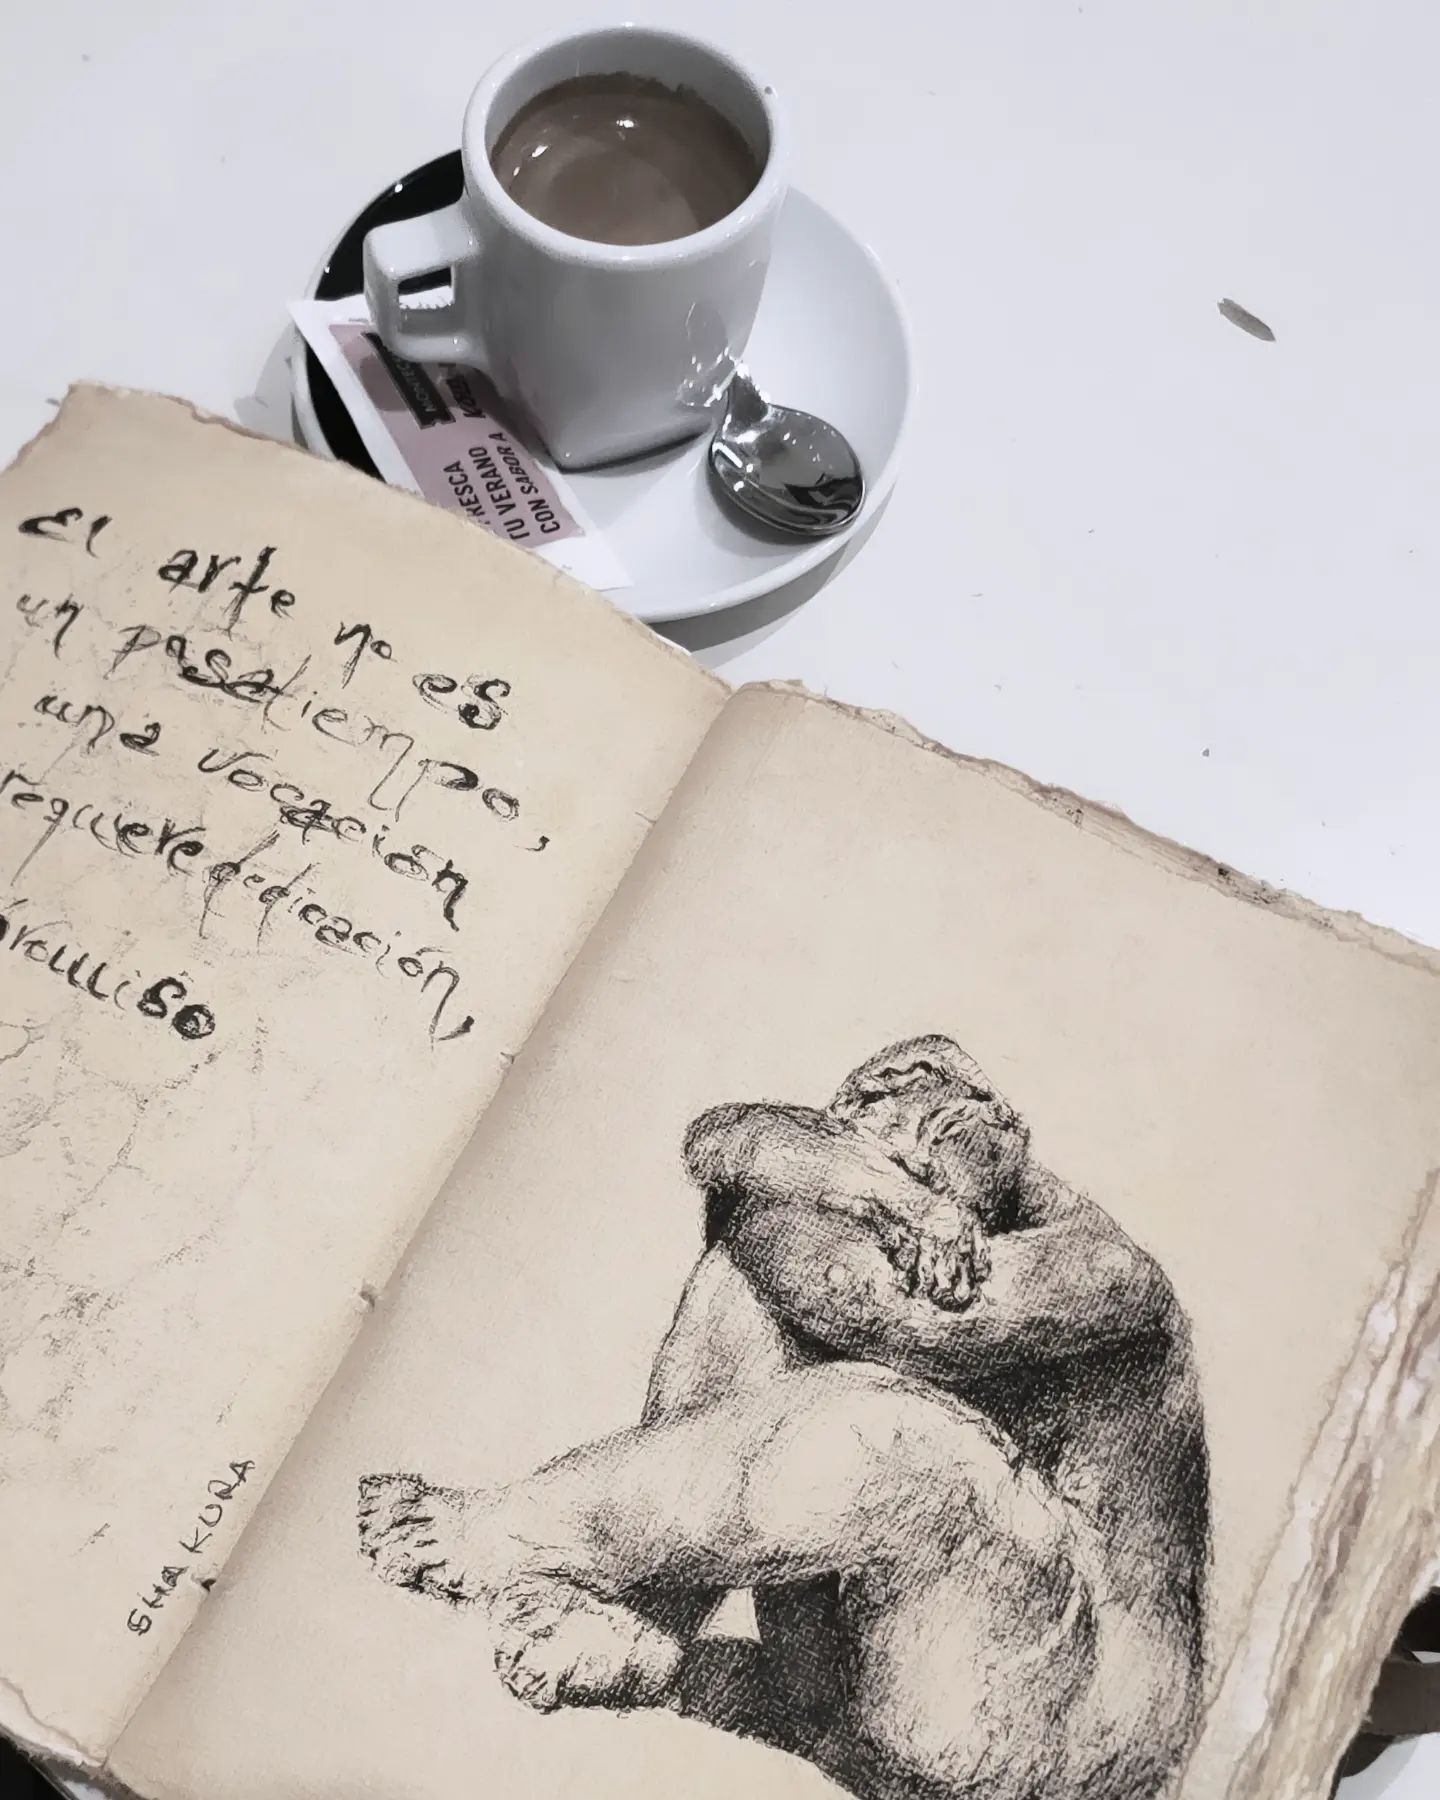 MONTECE
FRESCA
TU VERANO
CON SABOR A
El arte no es
un pasatiempo,
una vocación
requiere dedicación,
SHA KURA